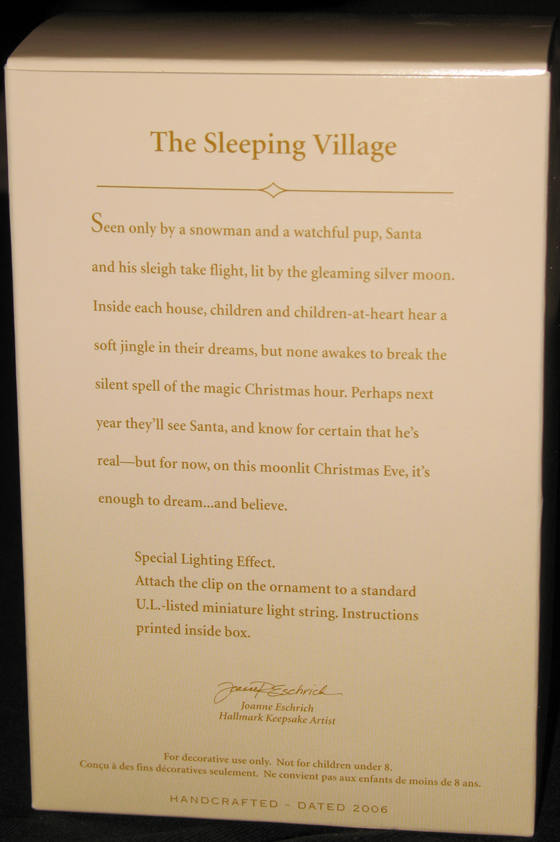 The Sleeping Village
Seen only by a snowman and a watchful pup, Santa
and his sleigh take flight, lit by the gleaming silver moon.
Inside each house, children and children-at-heart hear a
soft jingle in their dreams, but none awakes to break the
silent spell of the magic Christmas hour. Perhaps next
year they'll see Santa, and know for certain that he's
real—but for now, on this moonlit Christmas Eve, it's
enough to dream...and believe.
Special Lighting Effect.
Attach the clip on the ornament to a standard
U.L.-listed miniature light string. Instructions
printed inside box.
Joanne Eschrich
Joanne Eschrich
Hallmark Keepsake Artist
For decorative use only. Not for children under 8.
Conçu à des fins décoratives seulement. Ne convient pas aux enfants de moins de 8 ans.
HANDCRAFTED – DATED 2006